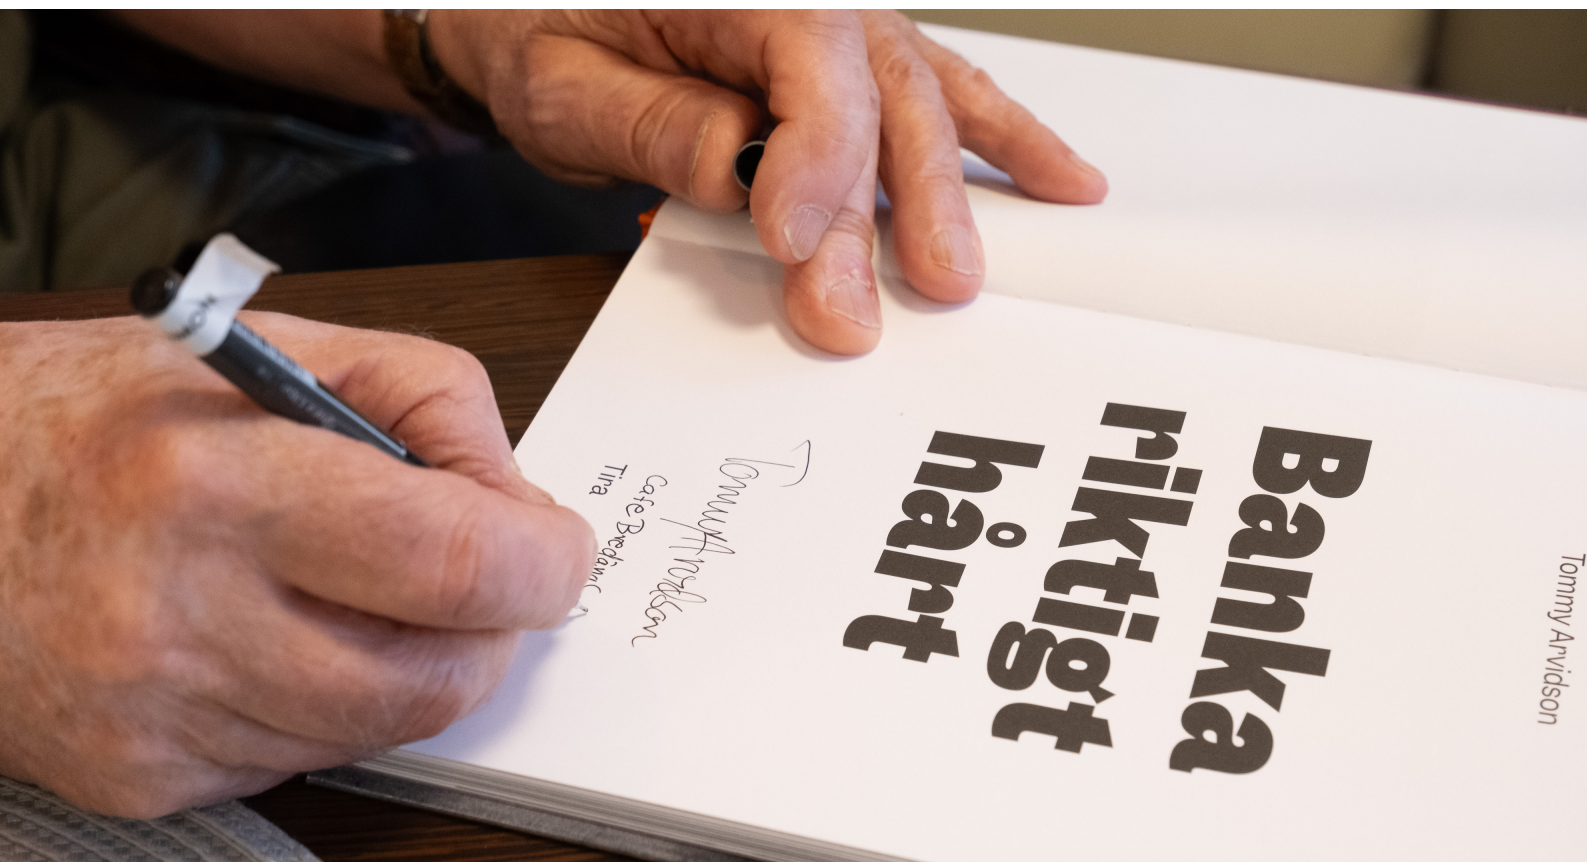 Tommy Arvidson
Banka
riktigt
hårt
Tommy Arvidson
Cafe
Tina